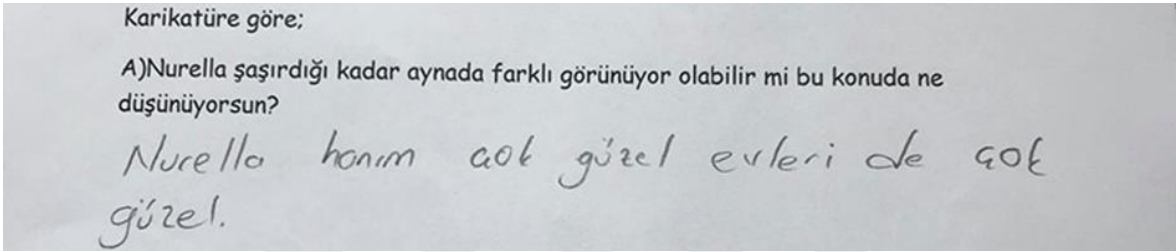 Karikatüre göre;
A)Nurella şaşırdığı kadar aynada farklı görünüyor olabilir mi bu konuda ne
düşünüyorsun?
Nurella hanım çok güzel evleri de çok
güzel.